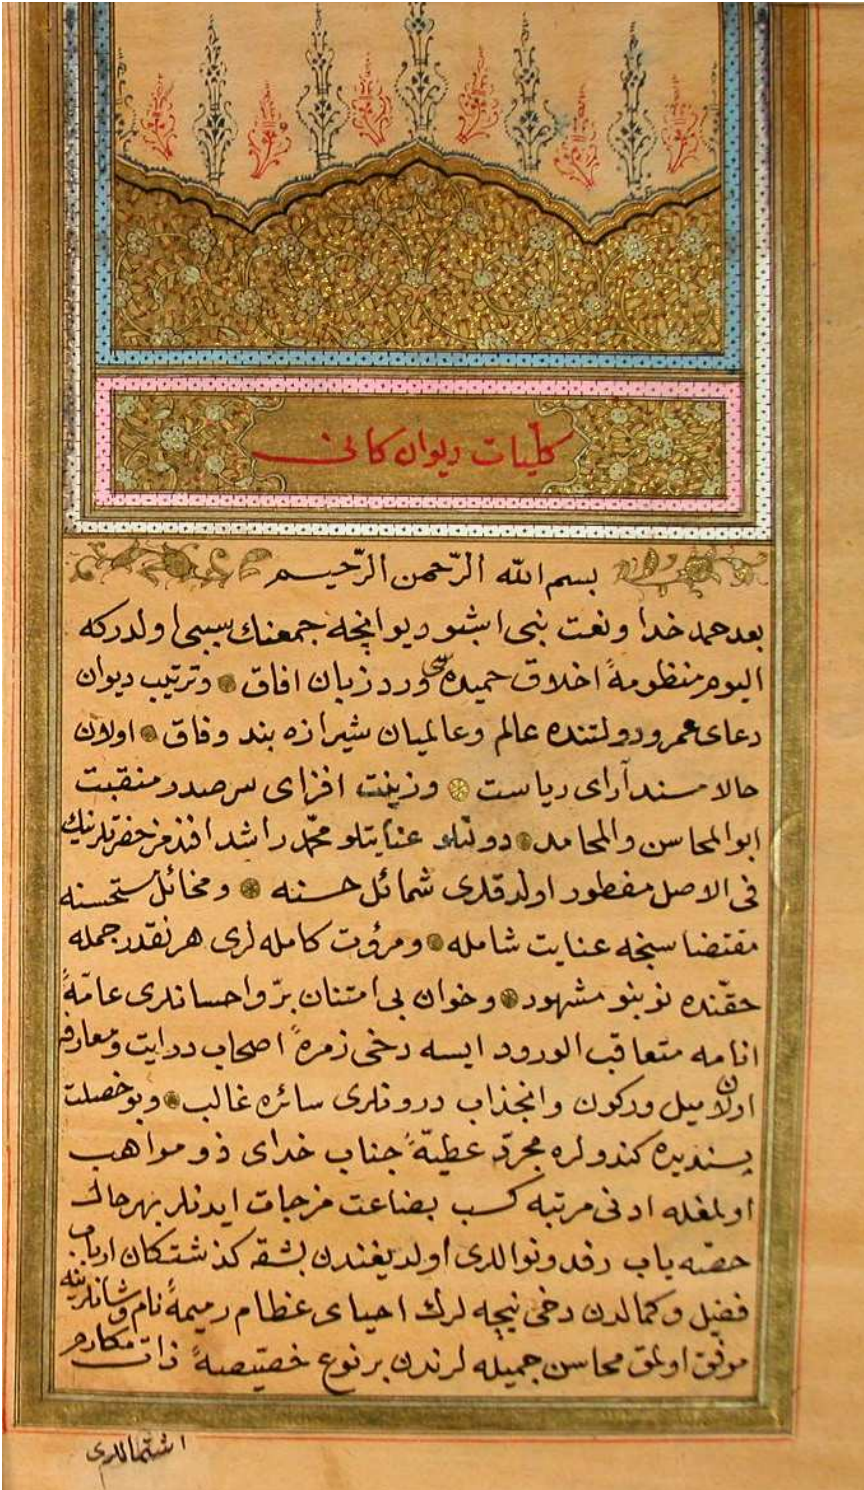 كلّيات ديوان كانى
بسم الله الرّحمن الرّحيم
بعد حمد خدا و نعت نبى اشبو ديوانچه جمعنك سببى اولدركه
اليوم منظومهٔ اخلاق حميده سى ورد زبان افاق و ترتيب ديوان
دعاى عمر و دولتنده عالم و عالميان شيرازه بند وفاق اولان
حالا مسند آراى رياست و زينت افزاى سر صدر منقبت
ابو المحاسن والمحامد دولتلو عنايتلو محمّد راشد افندمز حضرتلرينك
فى الاصل مفطور اولدقلرى شمائل حسنه و مخائل مستحسنه
مقتضاسنجه عنايت شامله و مروّت كامله لرى هر نقدر جمله
حقّنده نو بنو مشهود و خوان بى امتنان برّ و احسانلرى عامّهٔ
انامه متعاقب الورود ايسه دخى زمرهٔ اصحاب درايت و معارفه
اولان ميل و ركون و انجذاب درونلرى سائره غالب و بو خصلت
پسنديده كندولره مجرّد عطيّهٔ جناب خداى ذو مواهب
اولمغله ادنى مرتبه كسب بضاعت مزجات ايدنلر بهر حال
حصّه ياب رفد و نواللرى اولديغندن بشقه كذشتكان ارباب
فضل و كمالدن دخى نيچه لرك احياى عظام رميمهٔ نام و شانلرينه
موفق اولمق محاسن جميله لرندن بر نوع خصّيصهٔ ذات مكارم
اشتماللرى